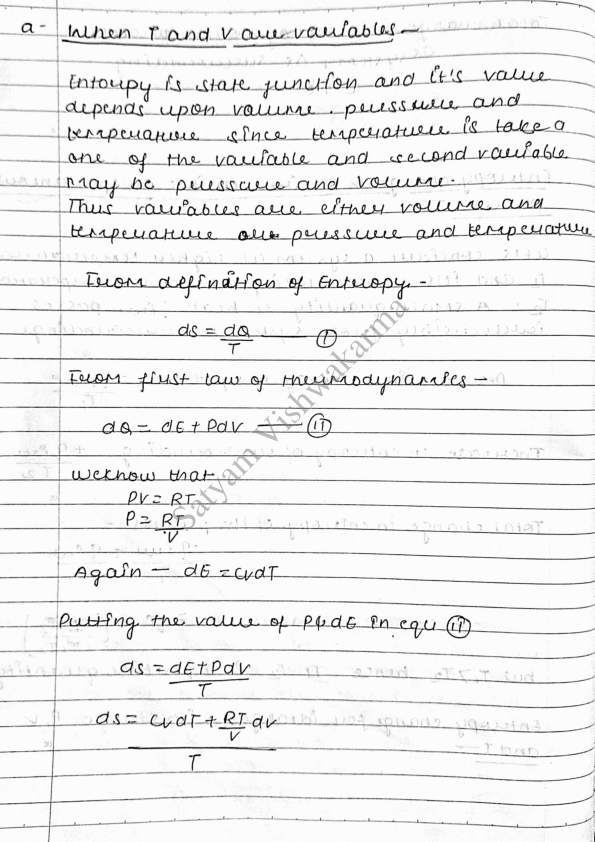 a- When T and V are variables -
Entropy is state function and it's value
depends upon volume. pressure and
temperature since temperature is take a
one of the variable and second variable
may be pressure and volume.
Thus variables are either volume and
temperature or pressure and temperature
From defination of Entropy -
ds = dQ/T — (I)
From first law of thermodynamics -
dQ = dE + PdV — (II)
We know that
PV = RT
P = RT/V
Again - dE = CvdT
Putting the value of P & dE in equ (II)
ds = dE + PdV / T
ds = CvdT + RT/V dv / T
Satyam Vishwakarma